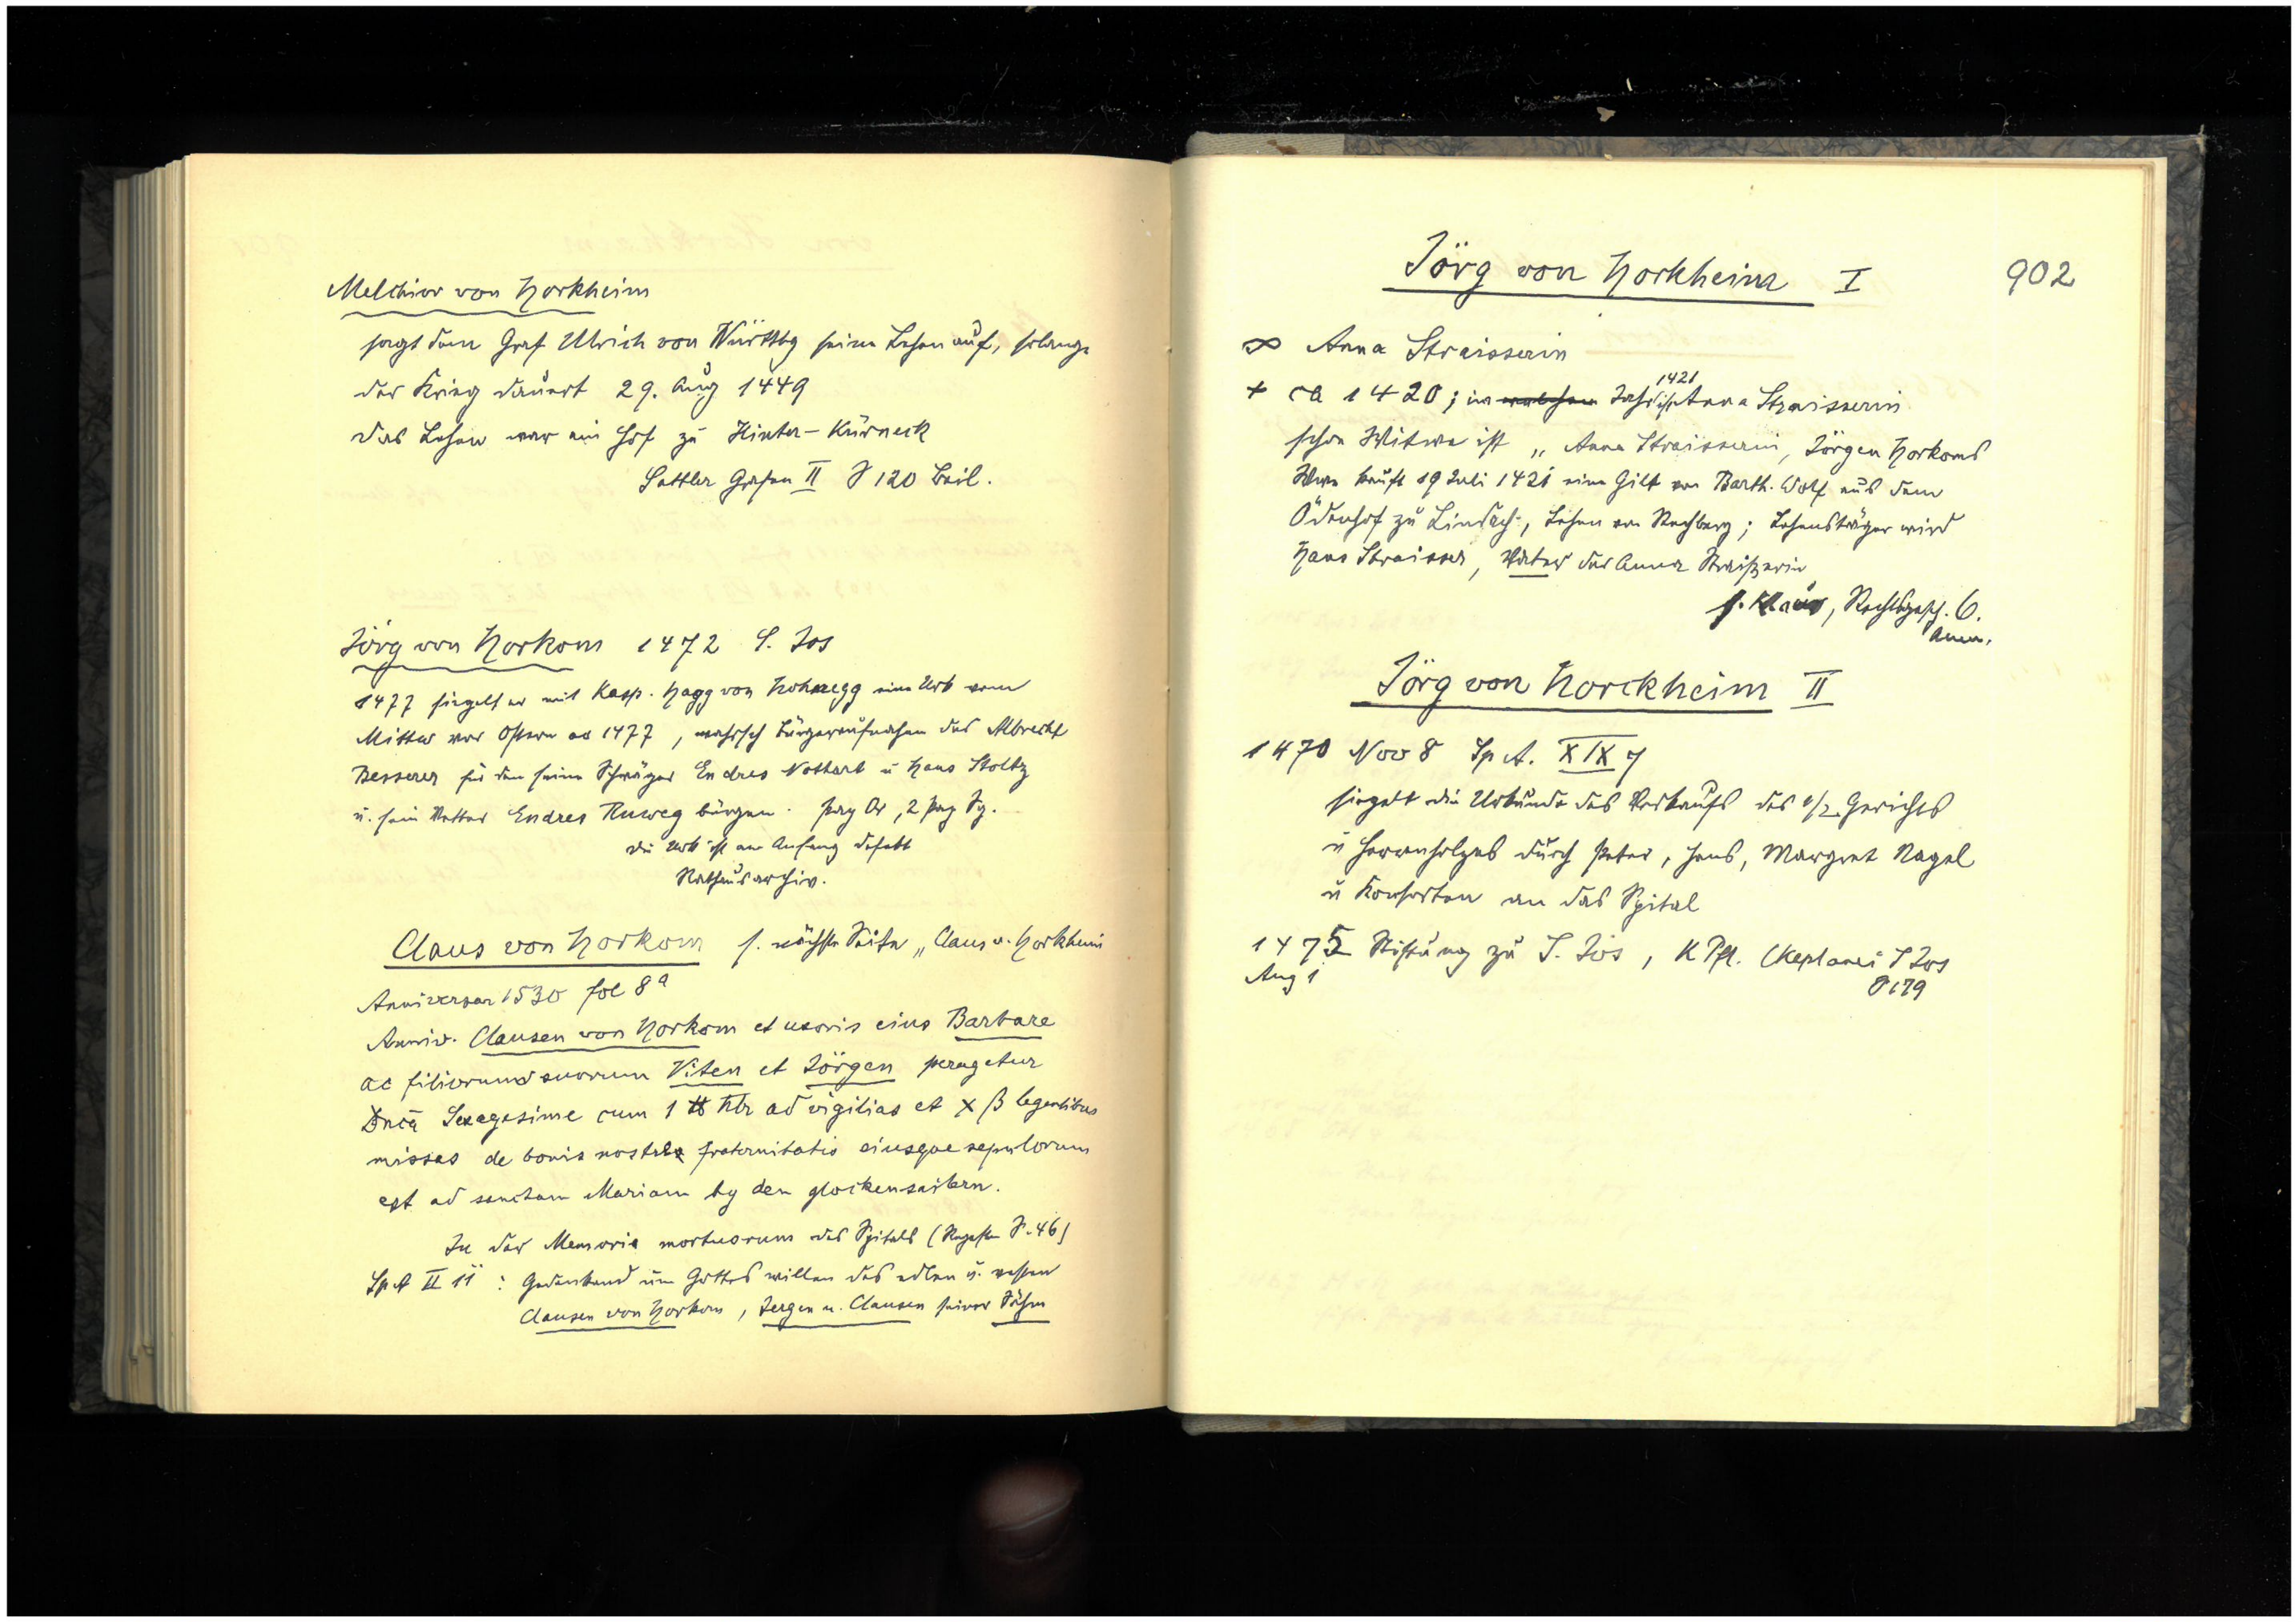 Melchior von Horkheim
sagt dem Graf Ulrich von Württbg seine Lehen auf, solange
der Krieg dauert 29. Aug 1449
das Lehen war ein Hof zu Hinter-Kürneck
Sattler Grafen II S 120 Beil.
Jörg von Horkom 1472 S. Jos
1477 siegelt er mit Kasp. Hagg von Hohnegg eine Urk vom
Mittw vor Ostern ao 1477, wahrsch Bürgeraufnahme des Albrecht
Besserer für den seine Schwäger Endres Nothart u Hans Stoltz
u. sein Vetter Endres Ruweg bürgen. Perg Or, 2 Perg Sg.
die Urk ist am Anfang defekt
Rathausarchiv.
Claus von Horkom s. nächste Seite „Claus v. Horkheim
Anniversar 1530 fol 8a
Anniv. Clausen von Horkom et uxoris eius Barbare
ac filiorum suorum Viten et Jörgen peragetur
Dnca Sexagesime cum 1 ℔ hlr ad vigilias et X ß legentibus
missas de bonis nostre fraternitatis eiusque sepulorum
est ad sanctam Mariam by den glockensailern.
In der Memoria mortuorum des Spitals (Regesten S. 46)
Sp A II 11 : Gedenkend um Gottes willen des edlen u. vesten
Clausen von Horkom, Jergen u. Clausen seiner Söhne
902
Jörg von Horkheim I
∞ Anna Straisserin
+ ca 1420; im Jahr 1421 ist Anna Straisserin
schon Witwe ist „Anna Straisserin, Jörgen Horkoms
Wwe kauft 19 Juli 1421 eine Gilt von Barth. Wolf aus dem
Ödenhof zu Lindach, Lehen von Rechberg; Lehensträger wird
Hans Straisser, Vater der Anna Straißerin
s. Klaus, Rechtsgesch. 6.
Anm.
Jörg von Horckheim II
1470 Nov 8 Sp A. XIX 7
siegelt die Urkunde des Verkaufs des 1/2 Gerichts
u Herrenholzes durch Peter, Hans, Margret Nagel
u Konsorten an das Spital
1475 Stiftung zu S. Jos, K Pfl. (Keplanei S Jos
Aug 1
S 179